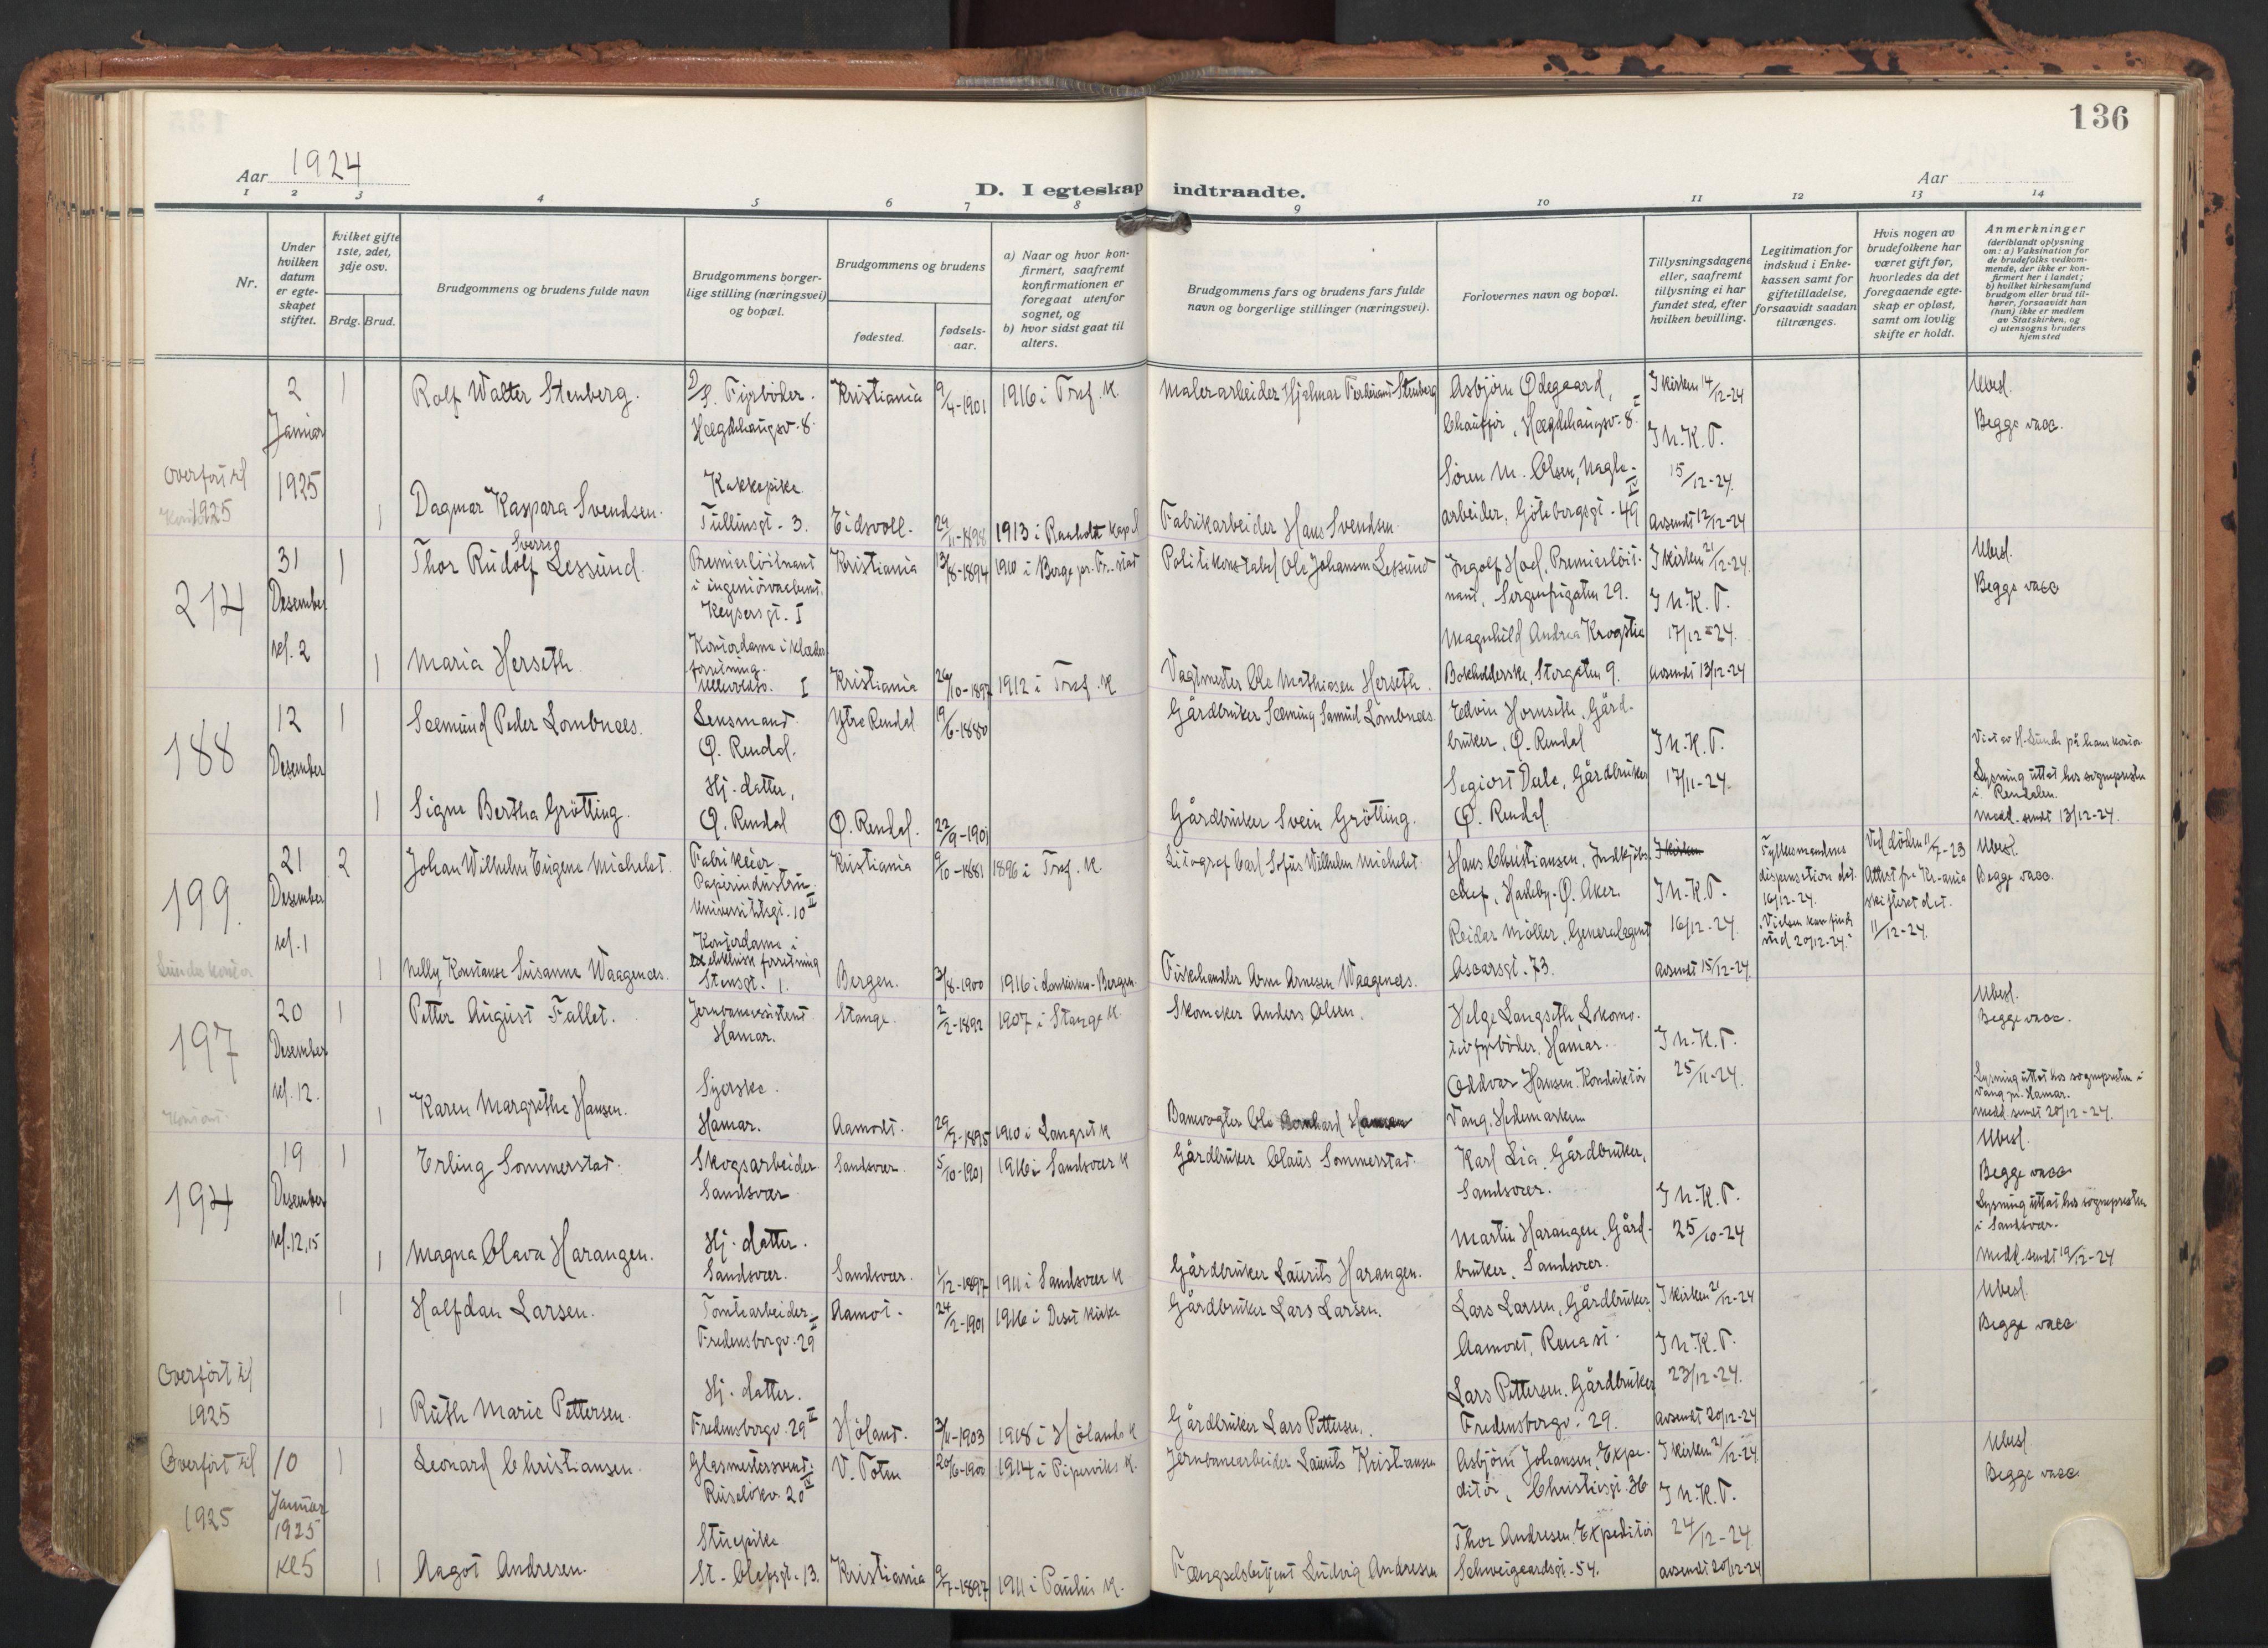 136
Aar 1924
Aar
D. I egteskap indtraadte.
1 2 3 4 5 6 7 8 9 10 11 12 13 14
Nr.
Under hvilken datum er egteskapet stiftet.
Hvilket gifte 1ste, 2det, 3dje osv.
Brdg. Brud.
Brudgommens og brudens fulde navn
Brudgommens borgerlige stilling (næringsvei) og bopæl.
Brudgommens og brudens
fødested.
fødselsaar.
a) Naar og hvor konfirmert, saafremt konfirmationen er foregaat utenfor sognet, og
b) hvor sidst gaat til alters.
Brudgommens fars og brudens fars fulde navn og borgerlige stillinger (næringsvei).
Forlovernes navn og bopæl.
Tillysningsdagene eller, saafremt tillysning ei har fundet sted, efter hvilken bevilling.
Legitimation for indskud i Enkekassen samt for giftetilladelse, forsaavidt saadan tiltrænges.
Hvis nogen av brudefolkene har været gift før, hvorledes da det foregaaende egteskap er opløst, samt om lovlig skifte er holdt.
Anmerkninger
(deriblandt oplysning om: a) Vaksination for de brudefolks vedkommende, der ikke er konfirmert her i landet; b) hvilket kirkesamfund brudgom eller brud tilhører, forsaavidt han (hun) ikke er medlem av Statskirken, og c) utensogns bruders hjemsted
Overført til 1925
2 Januar 1925
1 Rolf Walter Stenberg.
Fyrbøder. Hægdehaugsv. 8.
Kristiania 9/4-1901 1916 i Tref. K.
Malerarbeider Hjalmar Ferdinand Stenberg
Asbjørn Ødegaard,
Chauffør, Hægdehaugsv. 8 II
Søren M. Olsen, Nagle-
arbeider, Göteborgsgt. 49 IV
I kirken 14/12-24
I N.K.T. 15/12-24.
avsendt 12/12-24
Ubesl.
Begge vacc.
1 Dagmar Kaspara Svendsen.
Kokkepike Tullinsgt. 3.
Eidsvoll. 29/11-1898 1913 i Raaholt Kapel
Fabrikarbeider Hans Svendsen
214
31 Desember kl. 2
1 Thor Rudolf Sverre Lessund.
Premierløitnant i ingeniørvaabnet. Keysersgt. I
Kristiania 13/8-1894 1910 i Berge pr. Fr.stad
Politikonstabel Ole Johansen Lessund
Ingolf Hod, Premierløit-
nant, Sorgenfrigaten 29.
Magnhild Andrea Krogstie
Bokholderske, Storgaten 9.
I kirken 21/12-24.
I N.K.T. 17/12-24.
avsendt 13/12-24
Ubesl.
Begge vacc
1 Maria Herseth
Kontordame i klædesforretning. Ullevoldsv. I
Kristiania 26/10-1897 1912 i Tref. K
Vagtmester Ole Mathiasen Herseth.
188
12 Desember
1 Seemund Peder Lombnæs.
Lensmand Ø. Rendal.
Ytre Rendal 19/6-1880
Gårdbruker Seeming Samud Lombnæs.
Edvin Hornseth, Gård-
bruker, Ø. Rendal
Segiort Dale, Gårdbruker
Ø. Rendal
I N.K.T. 17/11-24.
Viet av H. Sunde på hans kontor
Lysning uttat hos sogneprestn i Rendalen.
medd. sendt 13/12-24.
1 Signe Bertha Grötting.
Hj. datter, Ø. Rendal
Ø. Rendal. 22/9-1901
Gårdbruker Svein Grötting.
199.
Sundes kontor
21 Desember kl. 1
2 Johan Wilhelm Eugene Michelet.
Fabrikeier Papirindustrie Universitetsgt. 10 II
Kristiania 9/10-1881 1896 i Tref. K.
Litograf Carl Sofus Wilhelm Michelet.
Hans Christiansen, Indkjøbs-
chef, Hasleby. Ø. Aker.
Reidar Møller, Generalagent
Oscarsgt. 73.
I kirken
I N.K.T. 16/12-24.
avsendt 15/12-24
Fylkesmandens dispensation dat. 16/12-24.
"Vielsen kan finde sted 20/12-24."
Ved døden 11/7-23
Attest fra Kr-ania skifteret dat. 11/12-24.
Ubesl.
Begge vacc.
1 Nelly Konstanse Susanne Waagenæs.
Kontordame i elektrisk forretning Stensgt. 1.
Bergen. 3/8-1900 1916 i Domkirken-Bergen.
Fiskehandler Arne Arnesen Waagenæs.
197
Kontor
20 Desember kl. 12.
1 Petter August Fallet.
Jernbaneassistent Hamar.
Stange. 2/2-1892 1907 i Stange K.
Skomaker Anders Olsen.
Helge Langseth, Lokomo-
tivfyrbøder, Hamar.
Oddvar Hansen, Konduktør
Vang, Hedemarken
I N.K.T. 25/11-24.
Ubesl.
Begge vacc.
Lysning uttat hos sogneprestn i Vang pr. Hamar.
medd. sendt 20/12-24.
1 Karen Margrethe Hansen.
Syerske. Hamar.
Aamodt. 29/7-1895 1910 i Langset K
Banevogter Ole Bernhard Hansen
194
19 Desember kl. 12,15
1 Erling Sommerstad.
Skogsarbeider Sandsvær
Sandsvær. 5/10-1901 1916 i Sandsvær K
Gårdbruker Claus Sommerstad.
Karl Lia, Gårdbruker,
Sandsvær.
Martin Harangen, Gård-
bruker, Sandsvær.
I N.K.T. 25/10-24
Ubesl.
Begge vacc
Lysning uttat hos sogneprestn i Sandsvær.
medd. sendt 19/12-24
1 Magna Olava Harangen.
Hj. datter. Sandsvær.
Sandsvær. 1/12-1897 1911 i Sandsvær K
Gårdbruker Laurits Harangen.
Overført til 1925
1 Halfdan Larsen.
Tomtearbeider Fredensborgv. 29 II
Aamot. 24/2-1901 1916 i Deset Kirke
Gårdbruker Lars Larsen.
Lars Larsen, Gårdbruker,
Aamodt, Rena st.
Lars Pettersen, Gårdbruker
Fredensborgv. 29.
I kirken 21/12-24
I N.K.T. 23/12-24.
avsendt 20/12-24
Ubesl.
Begge vacc
1 Ruth Marie Pettersen.
Hj. datter. Fredensborgv. 29 II
Høland. 3/11-1903 1918 i Hølands K
Gårdbruker Lars Pettersen.
Overført til 1925
10 Januar 1925 Kl 5
1 Leonard Christiansen.
Glasmestersvend. Ruseløkv. 20 IV
V. Toten 20/6-1900 1914 i Pipervikens K.
Jernbanearbeider Laurits Kristiansen
Asbjørn Johansen, Expe-
ditør, Christiesgt. 36
Thor Andresen, Expeditør
Schweigaardsgt. 54.
I kirken 21/12-24
I N.K.T. 24/12-24
avsendt 20/12-24
Ubesl
Begge vacc
1 Aagot Andresen.
Stuepike St. Olafsgt. 13.
Kristiania 9/7-1897 1911 i Paulus K.
Fængselsbetjent Ludvig Andresen